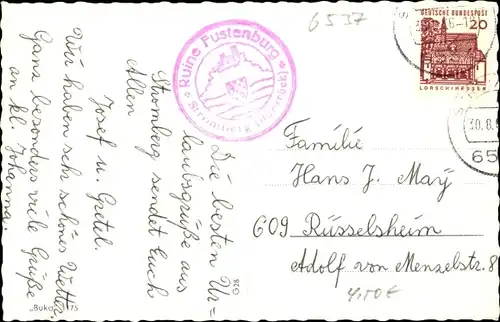 6537
Ruine Fustenburg
Stromberg (Hunsrück)
DEUTSCHE BUNDESPOST
20
LORSCH/HESSEN
30.8.
65
Die besten Ur=
laubsgrüße aus
Stromberg sendet Euch
Allen
Josef u. Gretel.
Wir haben sehr schönes Wetter.
Ganz besonders viele Grüße
an kl. Johanna.
Familie
Hans J. Mayß
609 Rüsselsheim
Adolf von Menzelstr. 8
4,50€